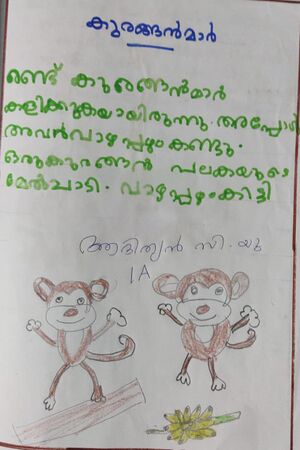 കുരങ്ങൻമാർ
രണ്ട് കുരങ്ങൻമാർ
കളിക്കുകയായിരുന്നു. അപ്പോൾ
അവൻവാഴപ്പഴം കണ്ടു.
ഒരുകുറങ്ങാൻ പലകയുടെ
മേൽചാടി. വാഴപ്പഴംകിട്ടി
ആദിത്യൻ സി. യു
1A